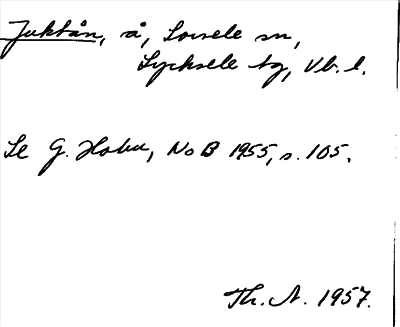 Juktån, å, Sorsele sn,
Lycksele tg, Vb. l.
Se G. Holm, NoB 1955, s. 105.
Th. A. 1957.